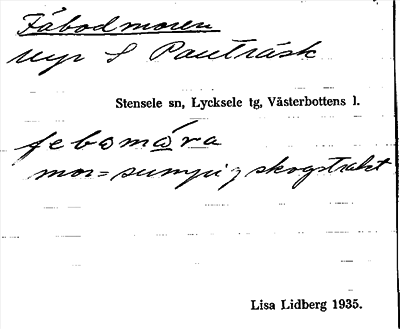 Fäbodmoren
myr S Pauträsk
Stensele sn, Lycksele tg, Västerbottens l.
febomåra
mor = sumpig skogstrakt
Lisa Lidberg 1935.